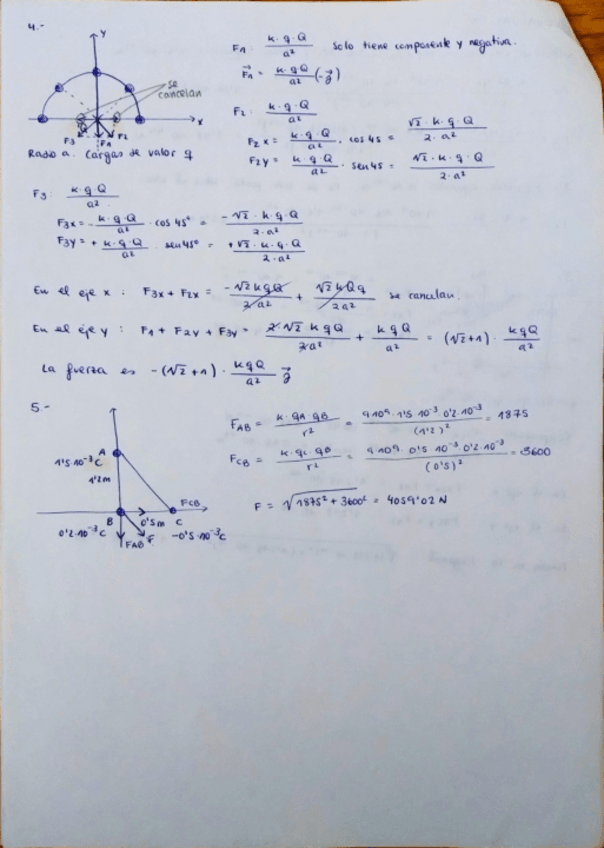 4.-
y
se
cancelan
x
Q
F3 F1 F2
Radio a. Cargas de valor q
F1: k·q·Q / a² Solo tiene componente y negativa.
F⃗1 = k·q·Q / a² (-j⃗)
F2: k·q·Q / a²
F2x = k·q·Q / a² · cos 45 = √2·k·q·Q / 2·a²
F2y = k·q·Q / a² · sen 45 = √2·k·q·Q / 2·a²
F3: k·q·Q / a²
F3x = - k·q·Q / a² · cos 45° = -√2·k·q·Q / 2·a²
F3y = + k·q·Q / a² · sen 45° = +√2·k·q·Q / 2·a²
En el eje x: F3x + F2x = -√2 k q Q / 2a² + √2 k Q q / 2a² se cancelan.
En el eje y: F1 + F2y + F3y = 2√2 k q Q / 2a² + k q Q / a² = (√2+1) · k q Q / a²
La fuerza es -(√2+1) · k q Q / a² j⃗
5.-
A
1'5·10⁻³C
1'2m
B 0'5m C
FCB
0'2·10⁻³C FAB F -0'5·10⁻³C
FAB = k·qA·qB / r² = 9·10⁹·1'5·10⁻³·0'2·10⁻³ / (1'2)² = 1875
FCB = k·qC·qB / r² = 9·10⁹·0'5·10⁻³·0'2·10⁻³ / (0'5)² = 3600
F = √1875²+3600² = 4059'02 N